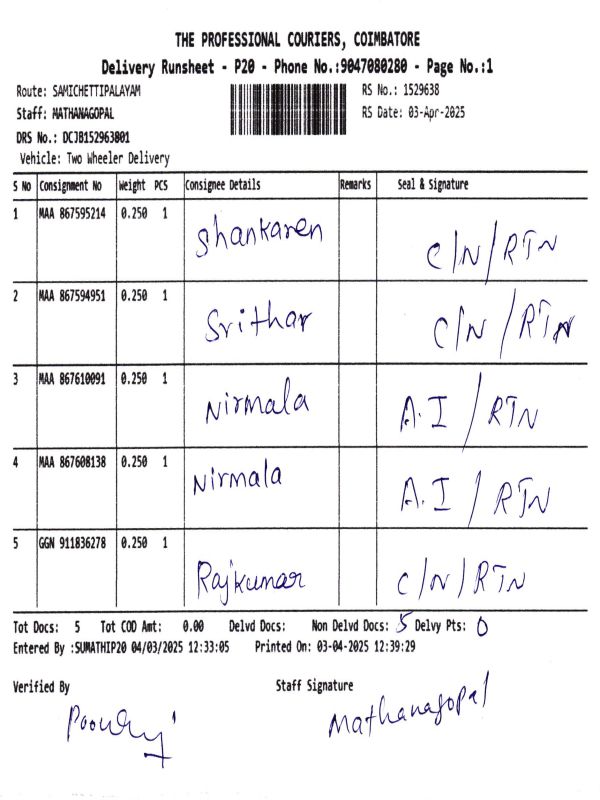 THE PROFESSIONAL COURIERS, COIMBATORE
Delivery Runsheet - P20 - Phone No.:9047080280 - Page No.:1
Route: SAMICHETTIPALAYAM RS No.: 1529638
Staff: MATHANAGOPAL RS Date: 03-Apr-2025
DRS No.: DCJB152963801
Vehicle: Two Wheeler Delivery
S No Consignment No Weight PCS Consignee Details Remarks Seal & Signature
1 MAA 867595214 0.250 1 Shankaren C/N/RTN
2 MAA 867594951 0.250 1 Srithar C/N/RTN
3 MAA 867610091 0.250 1 Nirmala A.I/RTN
4 MAA 867608138 0.250 1 Nirmala A.I/RTN
5 GGN 911836278 0.250 1 Rajkumar C/N/RTN
Tot Docs: 5 Tot COD Amt: 0.00 Delvd Docs: Non Delvd Docs: 5 Delvy Pts: 0
Entered By :SUMATHIP20 04/03/2025 12:33:05 Printed On: 03-04-2025 12:39:29
Verified By Staff Signature
Mathanagopal